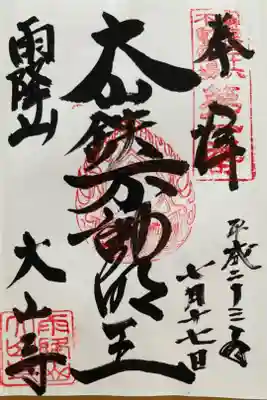 奉拝
平成二十三年
七月十七日
大山鉄不動明王
雨降山
大山寺